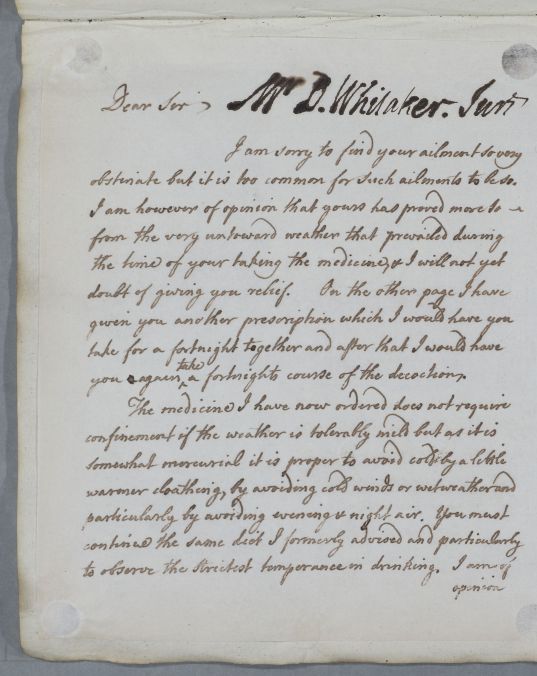 Dear Sir, Mr D. Whitaker. Junr
I am sorry to find your ailment so very
obstinate but it is too common for such ailments to be so.
I am however of opinion that yours has proved more so
from the very untoward weather that prevailed during
the time of your taking the medicine, & I will not yet
doubt of giving you relief. On the other page I have
given you another prescription which I would have you
take for a fortnight together and after that I would have
you again take a fortnights course of the decoction,
The medicine I have now ordered does not require
confinement if the weather is tolerably mild but as it is
somewhat mercurial it is proper to avoid cold by a little
warmer cloathing, by avoiding cold winds or wet weather and
particularly by avoiding evening & night air. You must
continue the same diet I formerly advised and particularly
to observe the strictest temperance in drinking. I am of
opinion